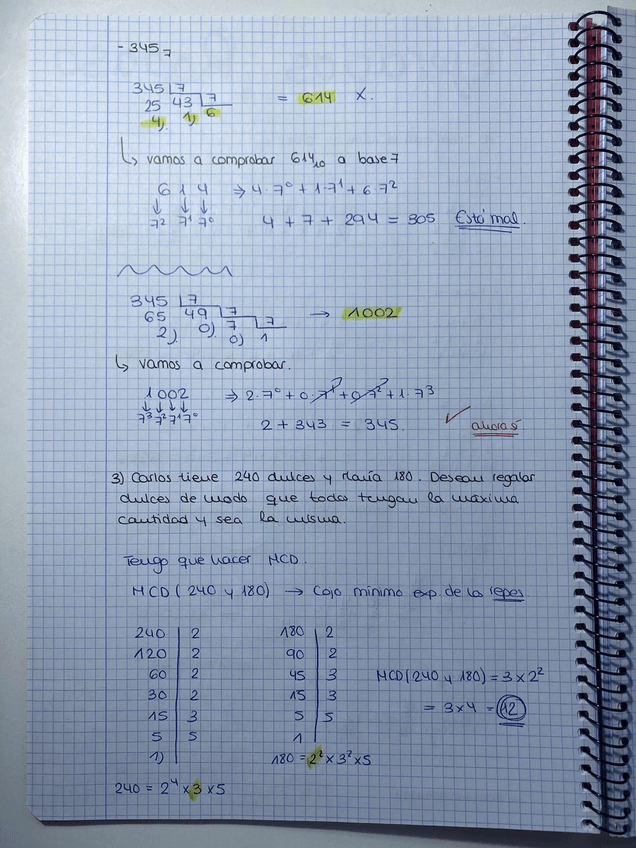 - 345₇
345 | 7
25 43 | 7 = 614 X.
4) 1) 6
↳ vamos a comprobar 614₁₀ a base 7
6 1 4 ⇒ 4·7⁰ + 1·7¹ + 6·7²
↓ ↓ ↓
7² 7¹ 7⁰ 4 + 7 + 294 = 305 Está mal.
345 | 7
65 49 | 7 → 1002
2) 0) 7 | 7
0) 1
↳ vamos a comprobar.
1002 ⇒ 2·7⁰ + 0·7¹ + 0·7² + 1·7³
↓ ↓ ↓ ↓
7³ 7² 7¹ 7⁰ 2 + 343 = 345. ✓ ahora sí
3) Carlos tiene 240 dulces y María 180. Desean regalar
dulces de modo que todos tengan la máxima
cantidad y sea la misma.
Tengo que hacer MCD.
MCD (240 y 180) → Cojo mínimo exp. de los repes
240 | 2 180 | 2
120 | 2 90 | 2
60 | 2 45 | 3 MCD (240 y 180) = 3 x 2²
30 | 2 15 | 3
15 | 3 5 | 5 = 3 x 4 = 12
5 | 5 1
1) 180 = 2² x 3² x 5
240 = 2⁴ x 3 x 5